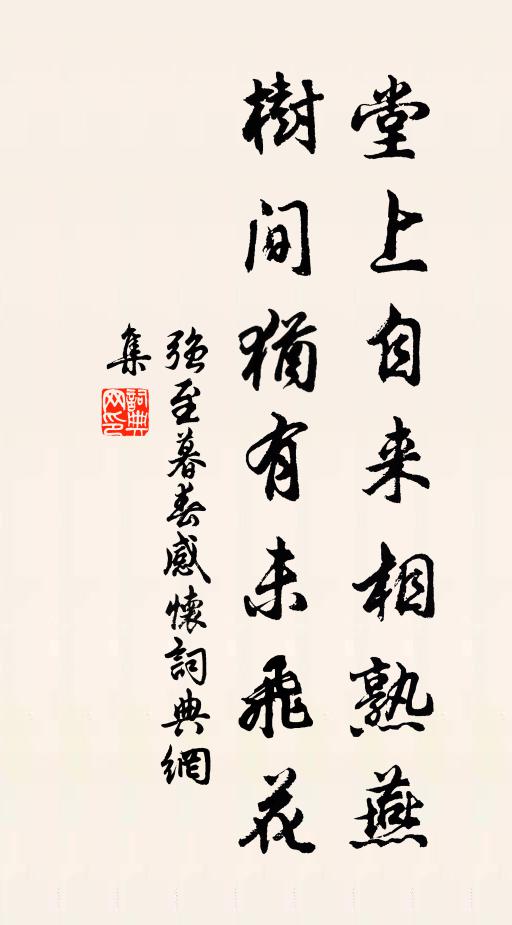 堂上自来相熟燕
樹間猶有未飛花
強至暮春感懷詞典網
集
詞典
网印